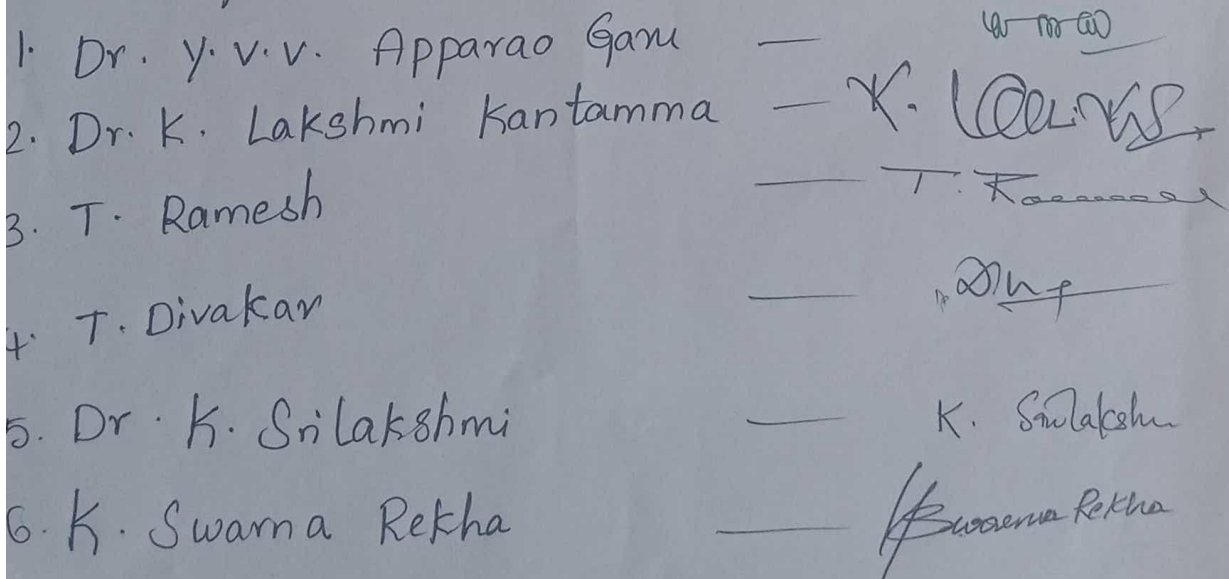 1. Dr. Y. V. V. Apparao Garu —
2. Dr. K. Lakshmi Kantamma — K.
3. T. Ramesh — T.
4. T. Divakar —
5. Dr. K. Srilakshmi — K. Srilakshmi
6. K. Swarna Rekha — K Swarna Rekha